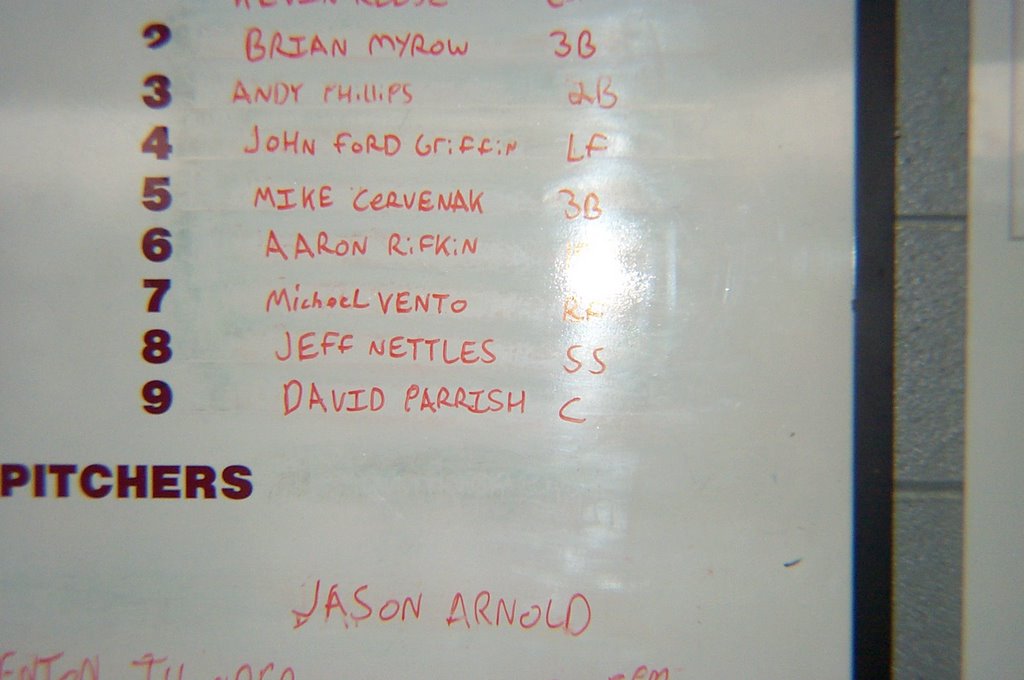 KEVIN REESE
2 BRIAN MYROW 3B
3 ANDY PHILLIPS 2B
4 JOHN FORD GRIFFIN LF
5 MIKE CERVENAK 3B
6 AARON RIFKIN
7 Michael VENTO RF
8 JEFF NETTLES SS
9 DAVID PARRISH C
PITCHERS
JASON ARNOLD